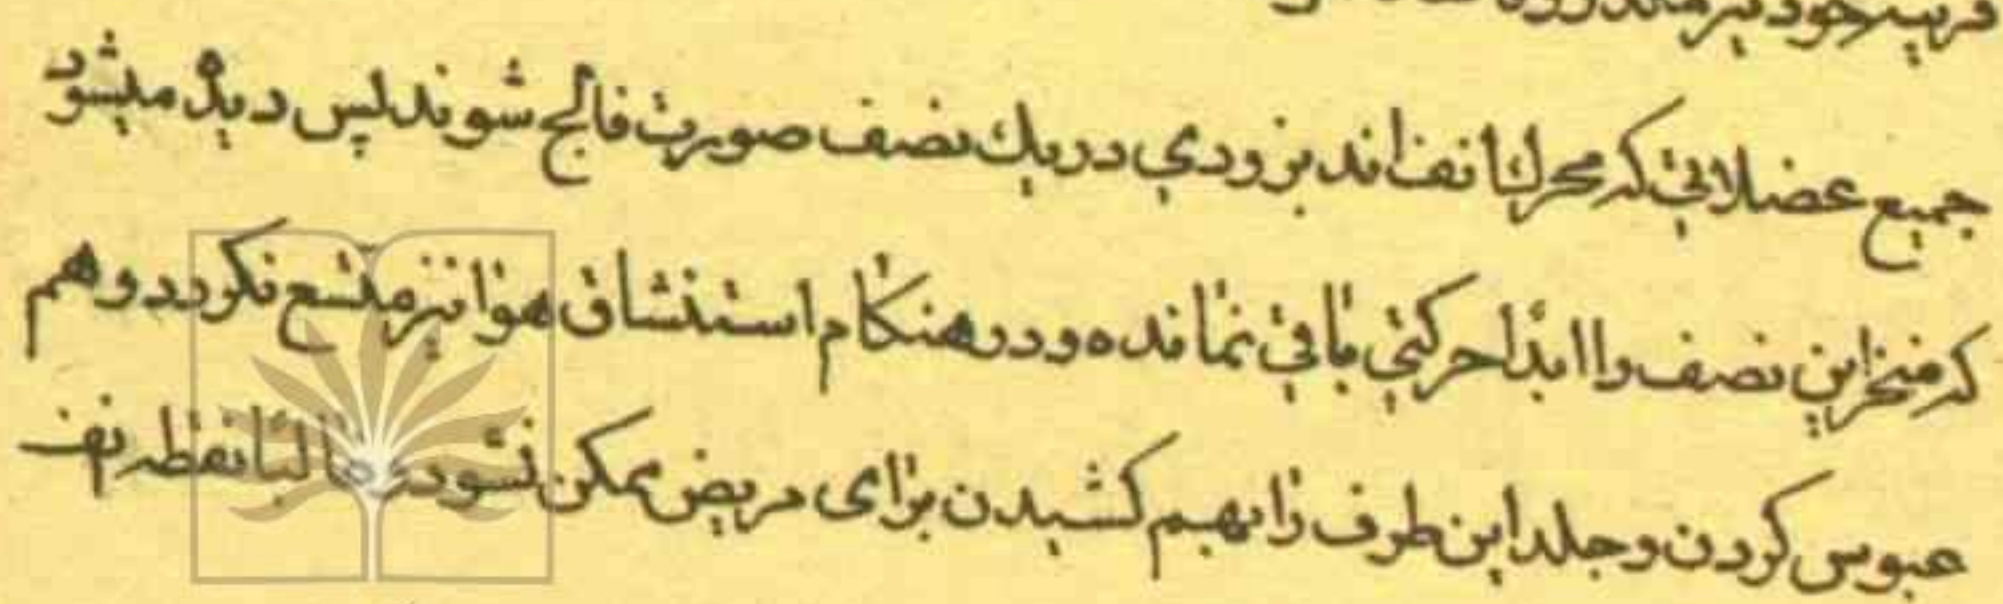 قریب خود نیز
جمیع عضلاتی که محرک انف اند بزودی در یک نصف صورت فالج شوند پس دیده میشود
که منخر این نصف را ابداً حرکتی باقی نمانده و در هنگام استنشاق هوا نیز متسع نکردد و هم
عبوس کردن و جلد این طرف را بهم کشیدن برای مریض ممکن نشود و غالباً نقطه انف